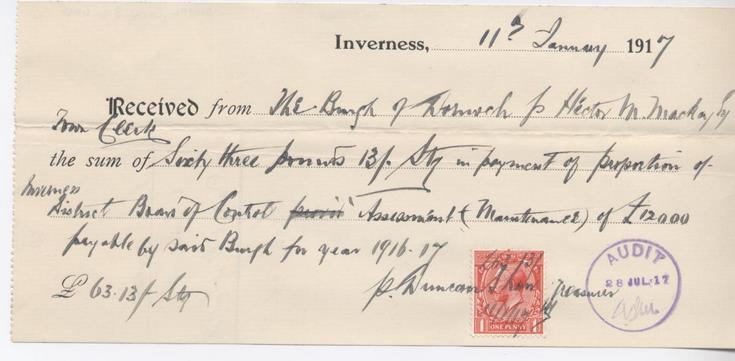 Inverness, 11th January 1917
Received from The Burgh of Dornoch p Hector M. Mackay Esq
Town Clerk
the sum of Sixty three pounds 13/- Stg in payment of proportion of
Inverness
District Board of Control Assessment (Maintenance) of £12000
payable by said Burgh for year 1916-17
£63.13/- Stg
p. Duncan Shaw Treasurer
ONE PENNY
AUDIT
28 JUL. 17